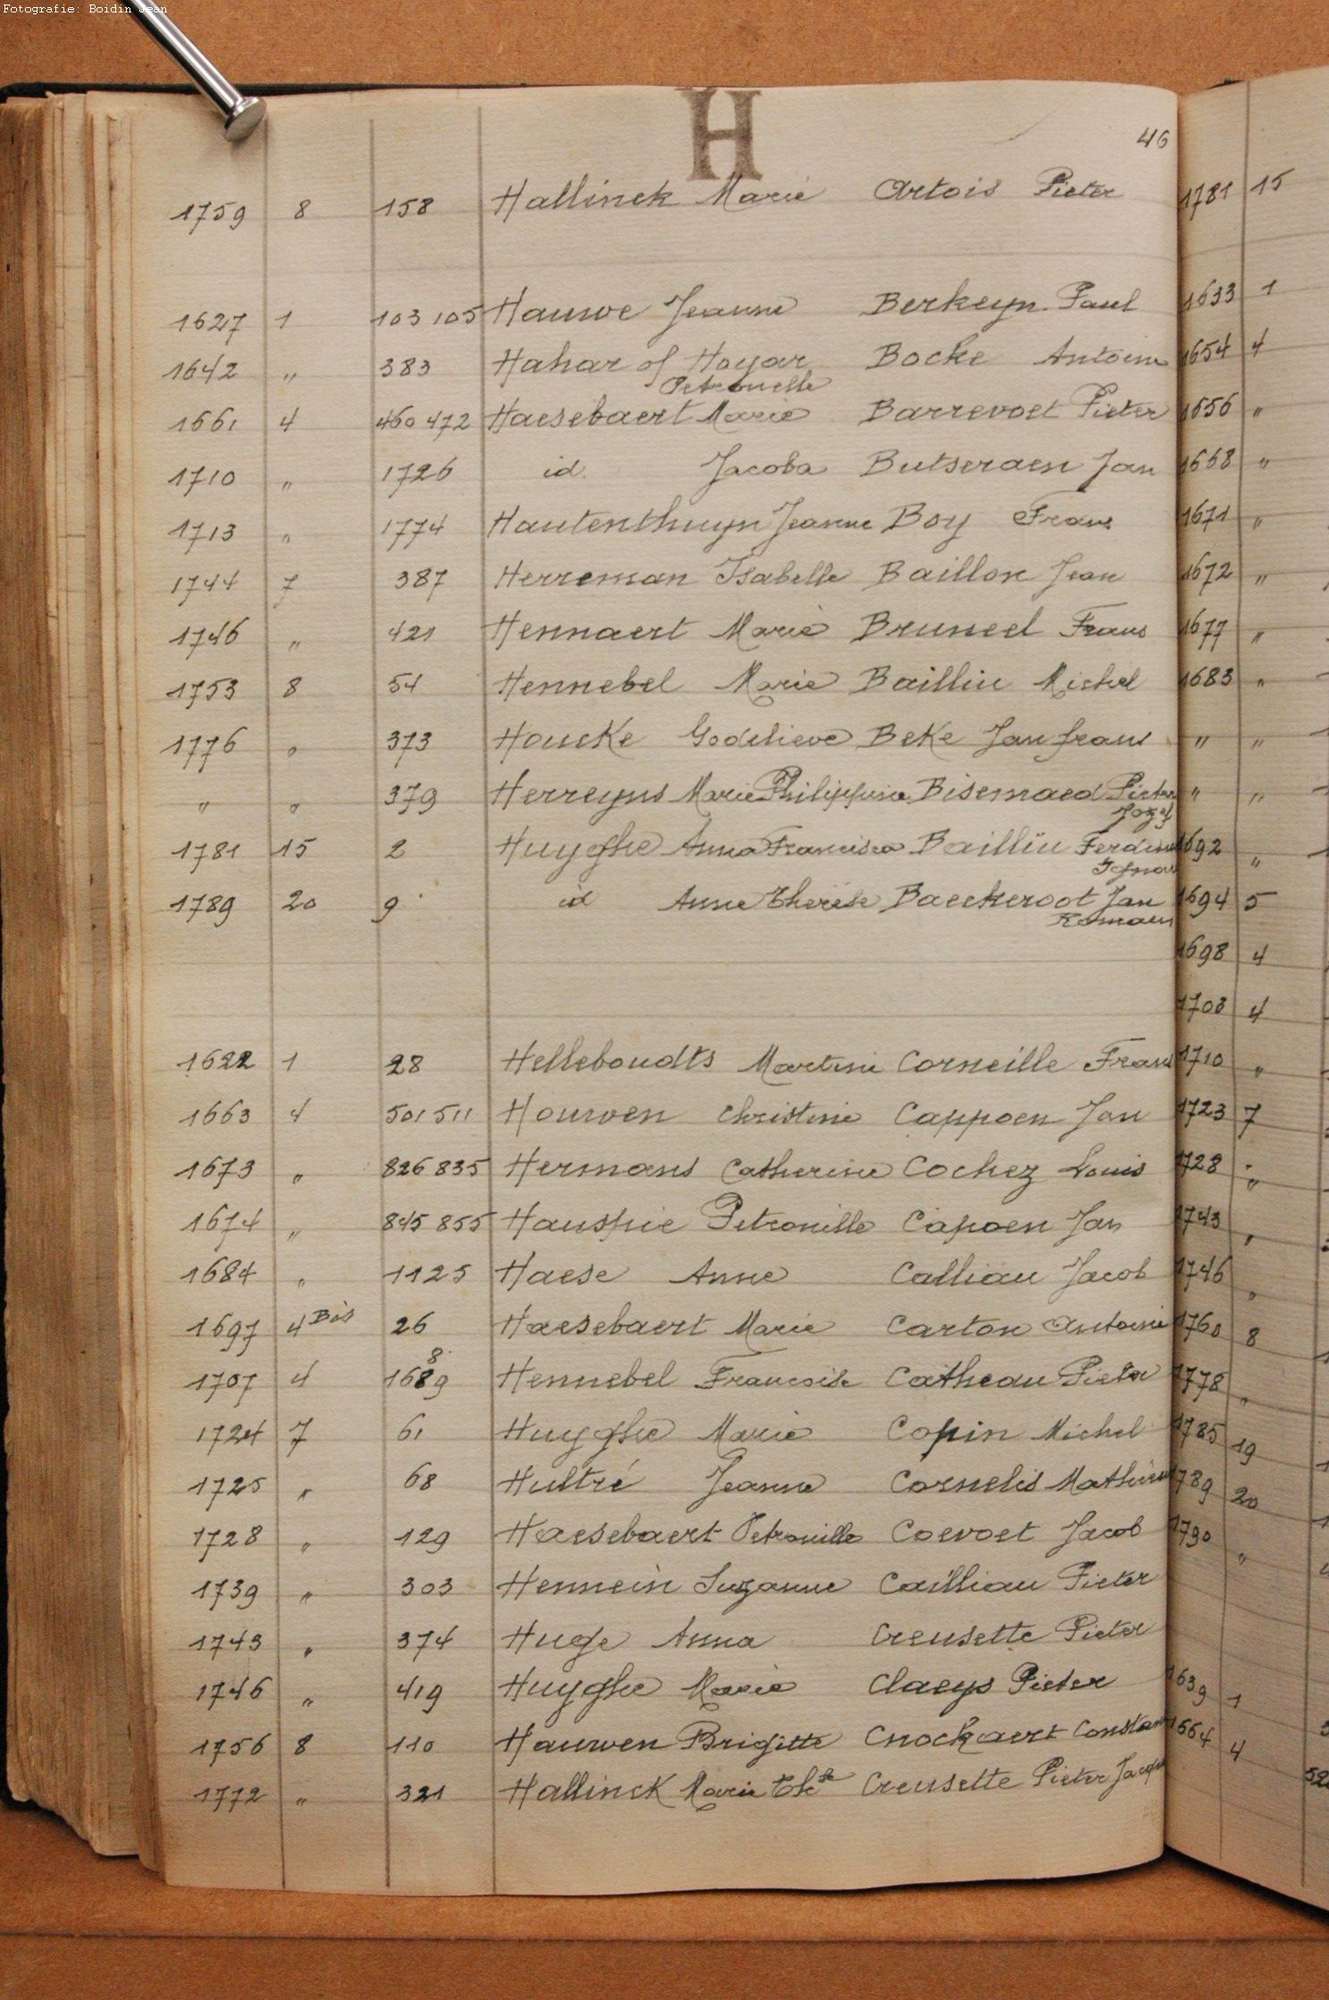 Fotografie: Boidin Jean
H
46
1759 8 158 Hallinck Marie Artois Pieter
1627 1 103 105 Hauwe Jeanne Berkeyn Paul
1642 " 383 Hahar of Hayar Bocke Antoine
Petronelle
1661 4 460 472 Haesebaert Marie Barrevoet Pieter
1710 " 1726 id. Jacoba Butseraen Jan
1713 " 1774 Hautenthuyn Jeanne Boy Frans
1744 7 387 Herreman Isabelle Baillon Jean
1746 " 421 Hennaert Marie Bruneel Frans
1753 8 54 Hennebel Marie Bailliu Michel
1776 " 373 Houcke Godelieve Beke Jan frans
" " 379 Herreyns Marie Philippine Bisemaed Pieter
Jozef
1781 15 2 Huyghe Anna Francisca Bailliu Ferdin
1789 20 9 id Anne Therese Baeckeroot Jan
Romain
1622 1 28 Helleboudts Martine Corneille Frans
1663 4 501 511 Houwen Christine Cappoen Jan
1673 " 826 835 Hermans Catherine Cochez Louis
1674 " 845 855 Hauspie Petronille Capoen Jan
1684 " 1125 Haese Anne Calliau Jacob
1697 4 Bis 26 Haesebaert Marie Carton Antoine
8
1707 4 1689 Hennebel Francoise Catheau Pieter
1724 7 61 Huyghe Marie Copin Michel
1725 " 68 Hultré Jeanne Cornelis Mathieu
1728 " 129 Haesebaert Petronille Coevoet Jacob
1739 " 303 Hennein Suzanne Cailliau Pieter
1743 " 374 Huge Anna Creusette Pieter
1746 " 419 Huyghe Marie Claeys Pieter
1756 8 110 Hauwen Brigitte Cnockaert Constan
1772 " 321 Hallinck Marie Th Creusette Pieter Jacques
1781 15
1633 1
1654 4
1656 "
1668 "
1671 "
1672 "
1677 "
1683 "
" "
" "
1692 "
1694 5
1698 4
1708 4
1710 "
1723 7
1728 "
1743 "
1746 "
1760 8
1778 "
1785 19
1789 20
1790 "
1639 1
1664 4